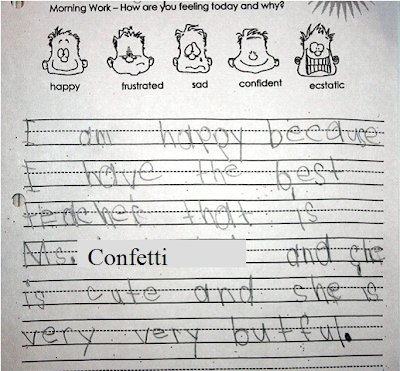 Morning Work – How are you feeling today and why?
happy frustrated sad confident ecstatic
I am happy because
I have the best
teacher that is
Ms. Confetti and she
is cute and she is
very very butful.